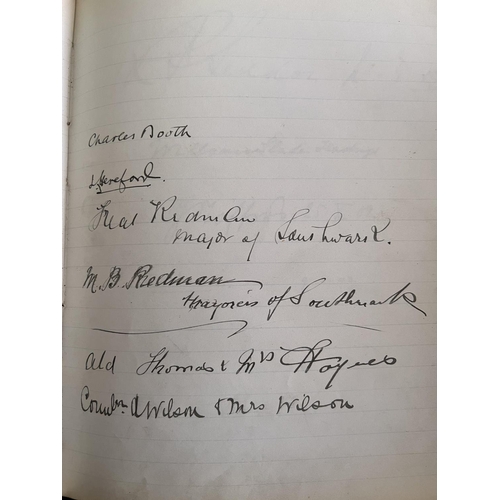 Charles Booth
Hereford.
Fred Redman
Mayor of Southwark.
M. B. Redman
Mayoress of Southwark
Ald Thomas & Mrs Haynes
A Wilson & Mrs Wilson